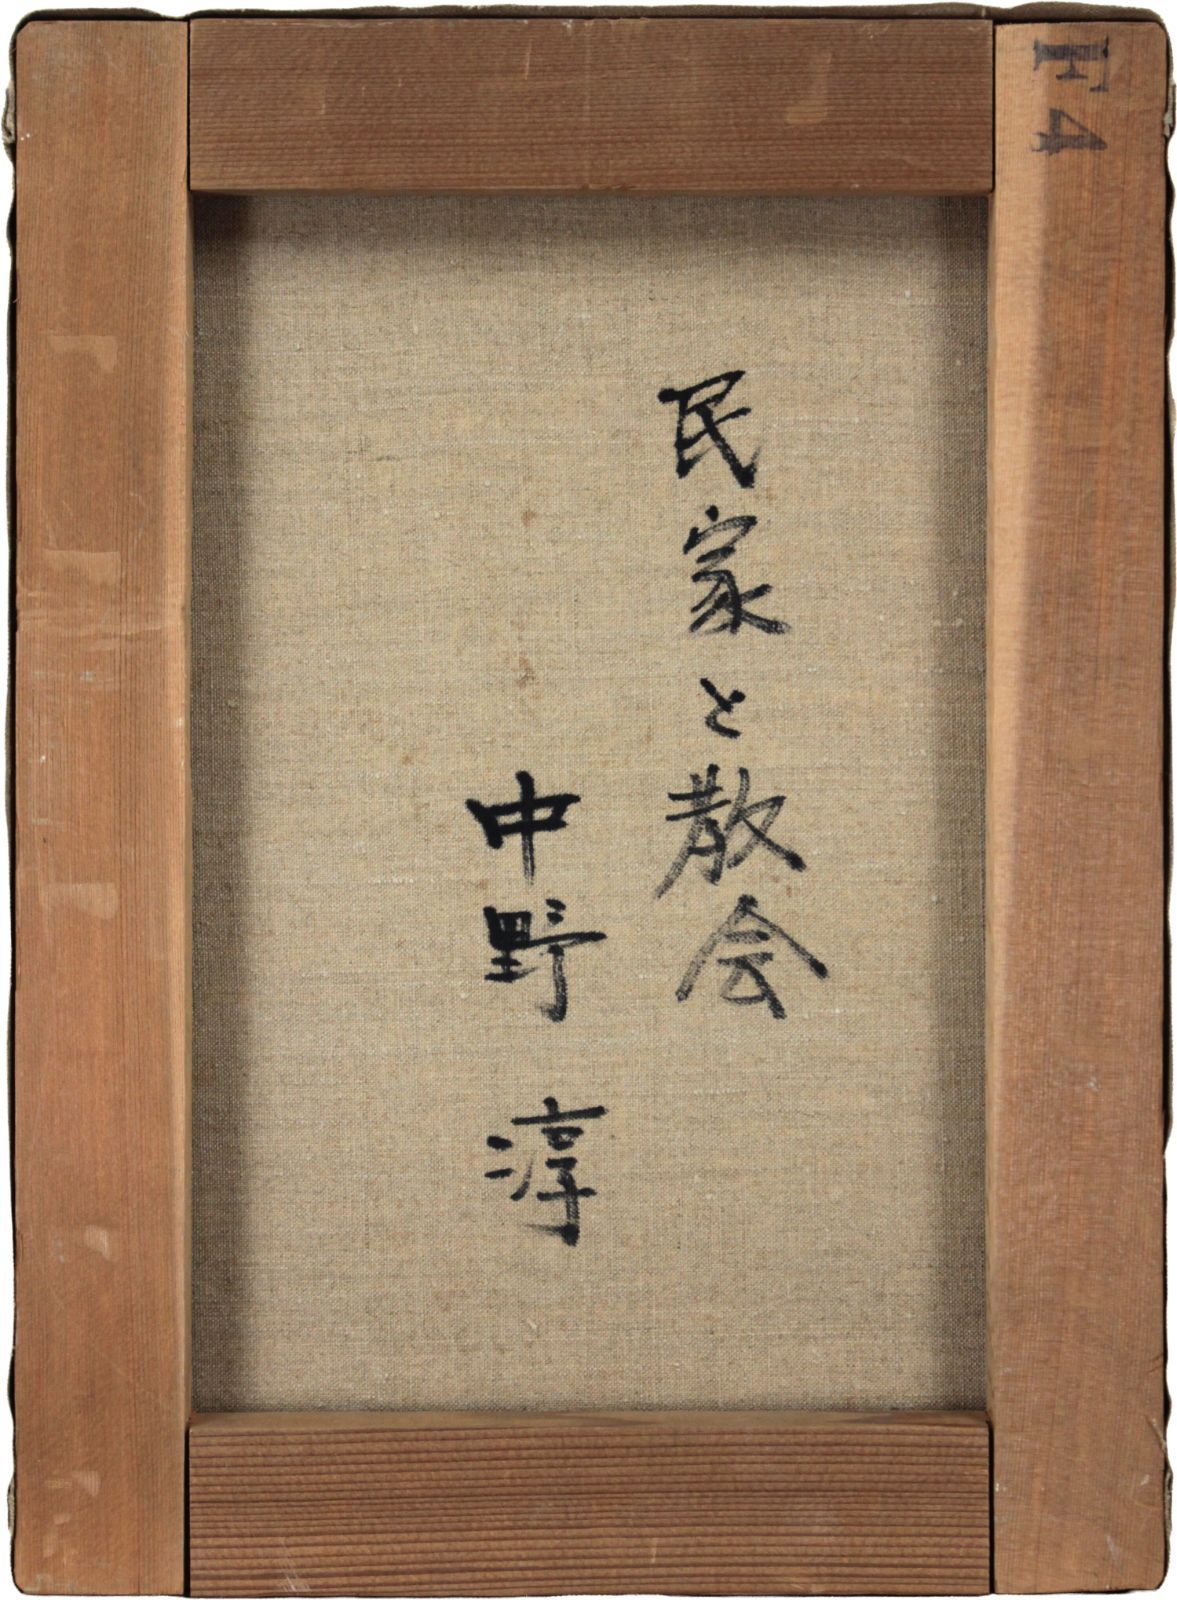 民家と散会
中野 淳
F4